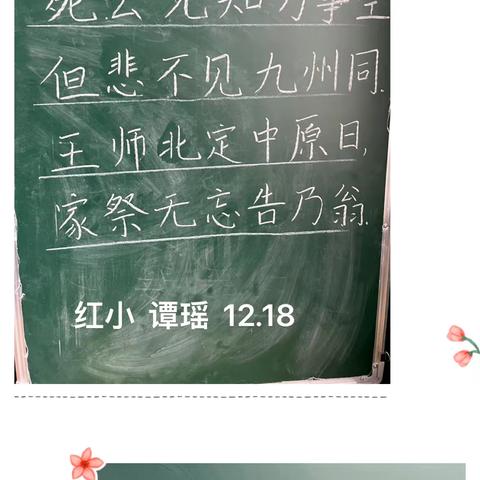 死去元知万事空
但悲不见九州同.
王师北定中原日,
家祭无忘告乃翁.
红小 谭瑶 12.18